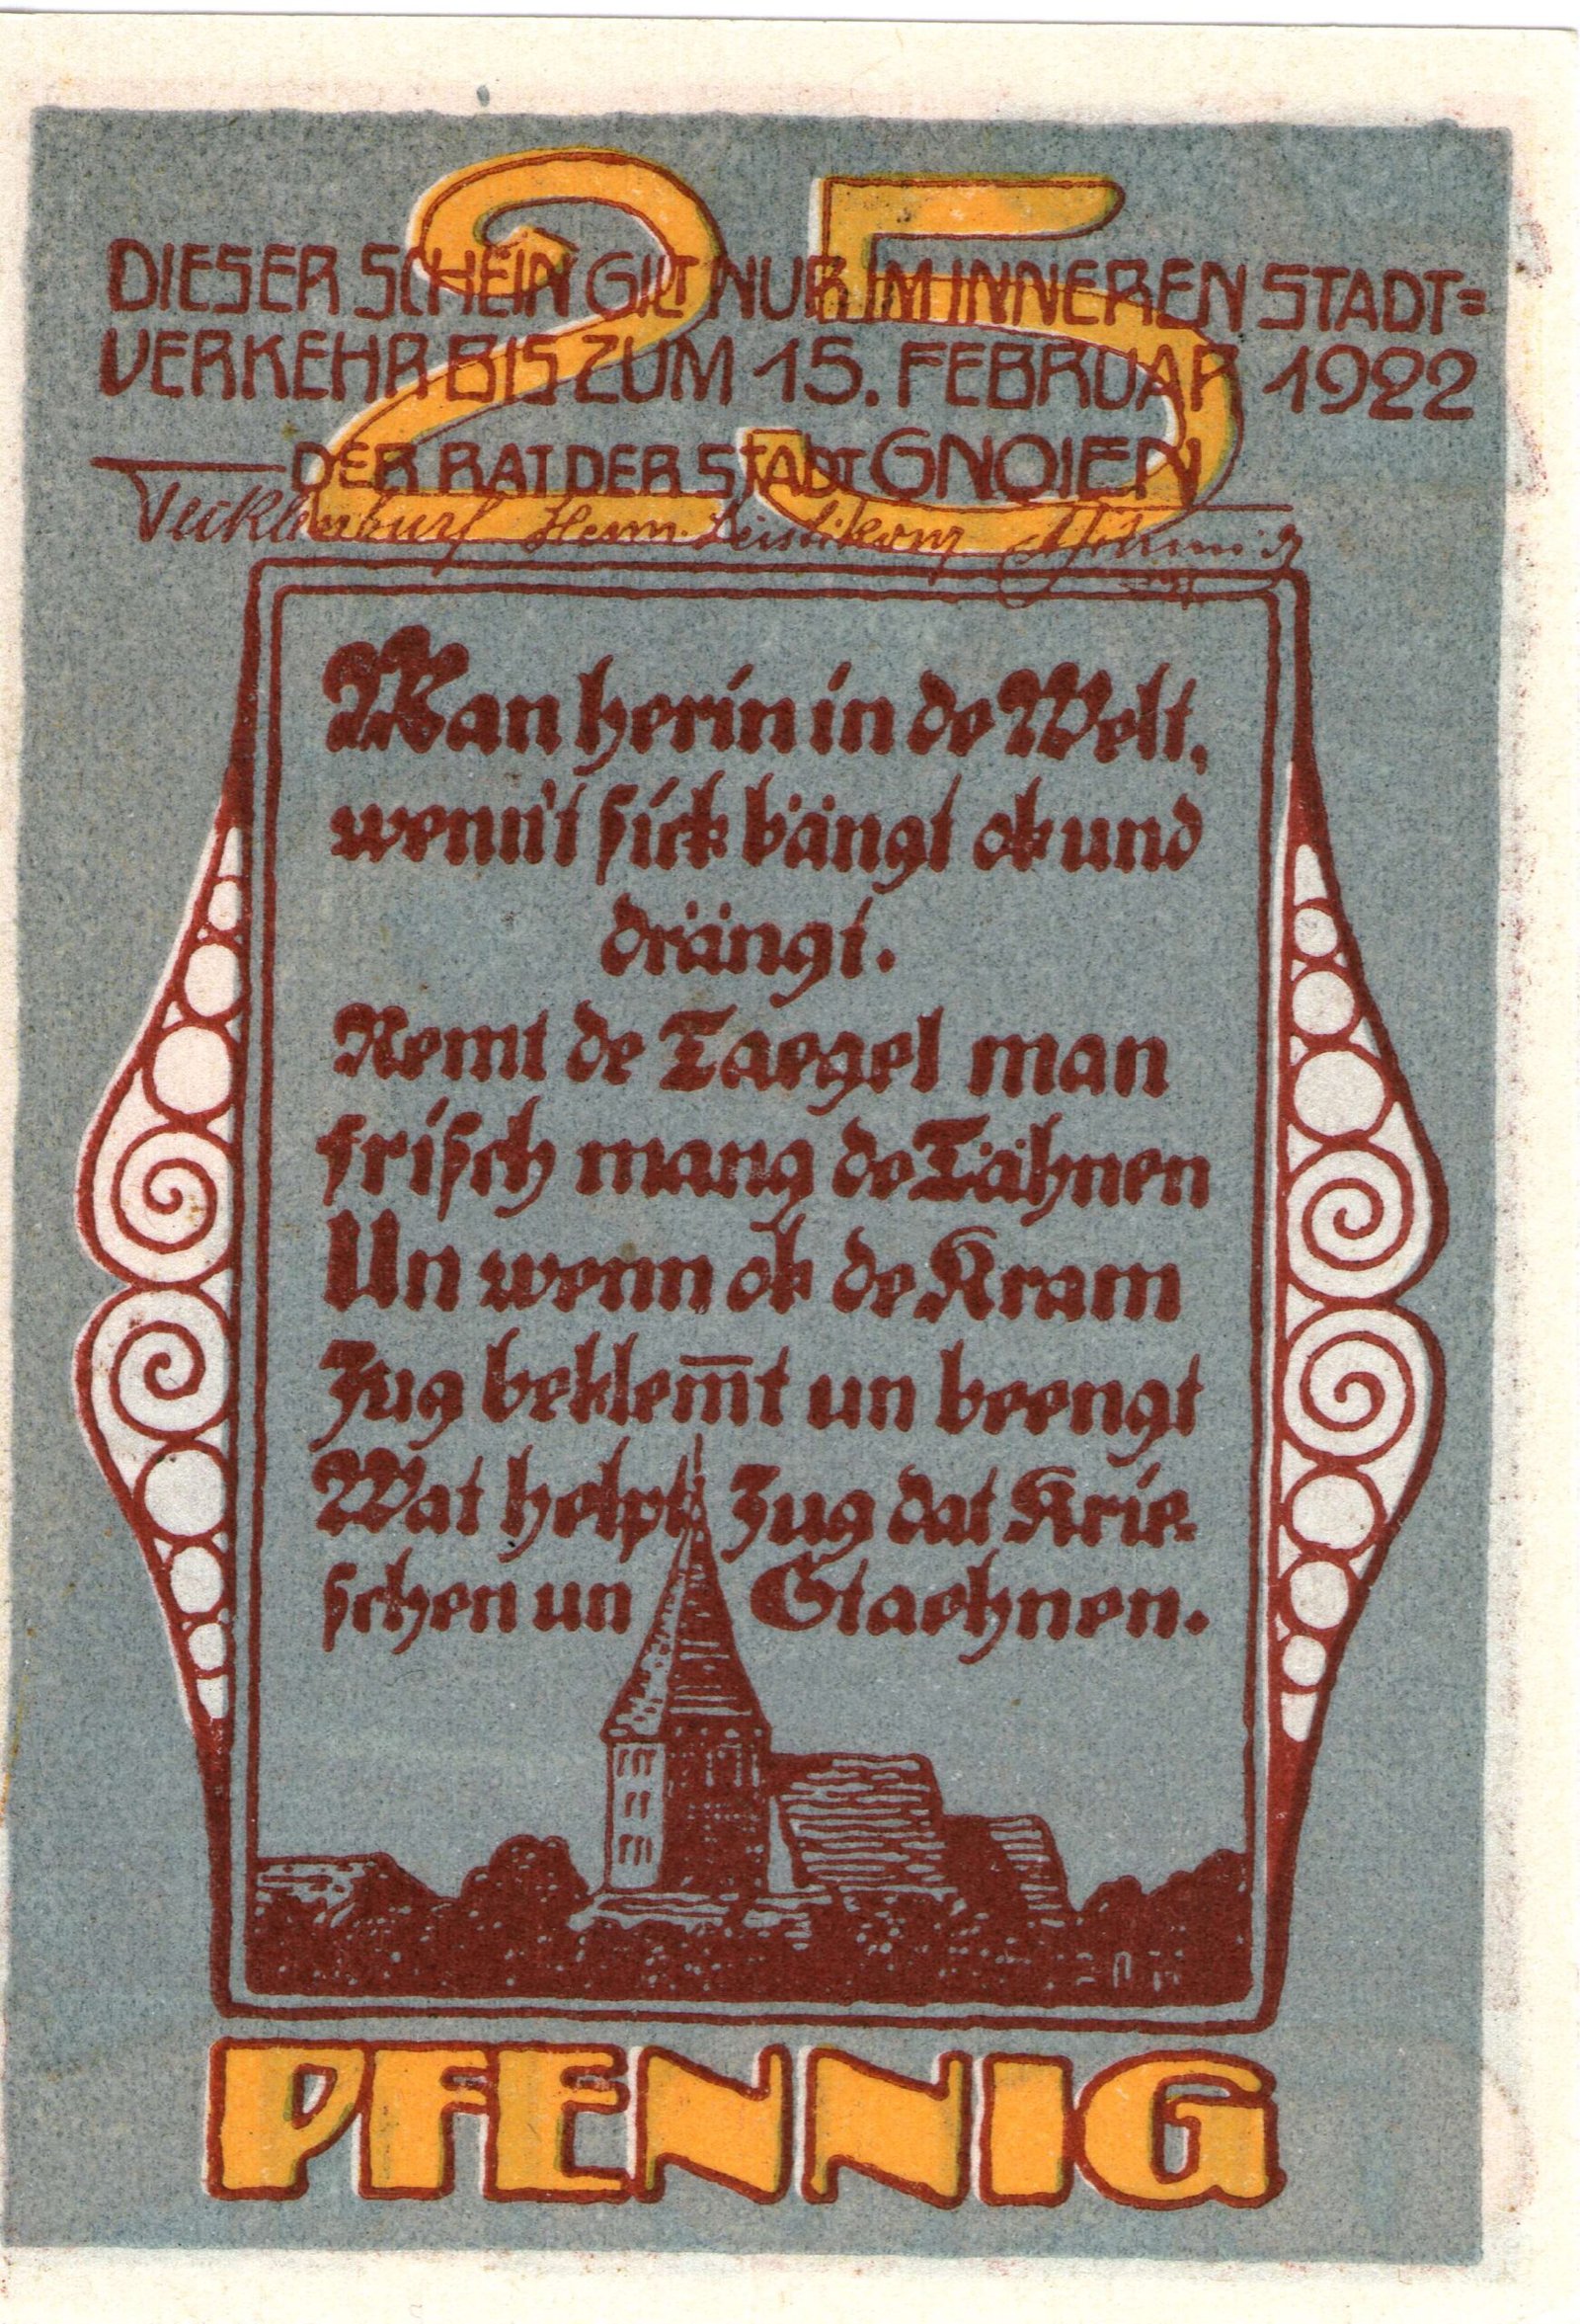 25
DIESER SCHEIN GILT NUR IM INNEREN STADT=
VERKEHR BIS ZUM 15. FEBRUAR 1922
DER RAT DER STADT GNOIEN
Man herin in de Welt,
wenn't sick bängt ok und
drängt.
Nemt de Taegel man
frisch mang de Tähnen
Un wenn ok de Kram
Jug beklem̅t un beengt
Wat helpt Jug dat Krie-
schen un Staehnen.
PFENNIG